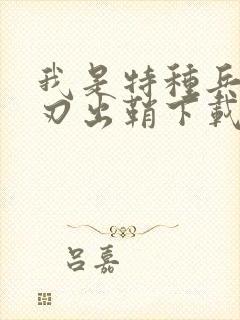 我是特種兵
刃出鞘下載
吕嘉